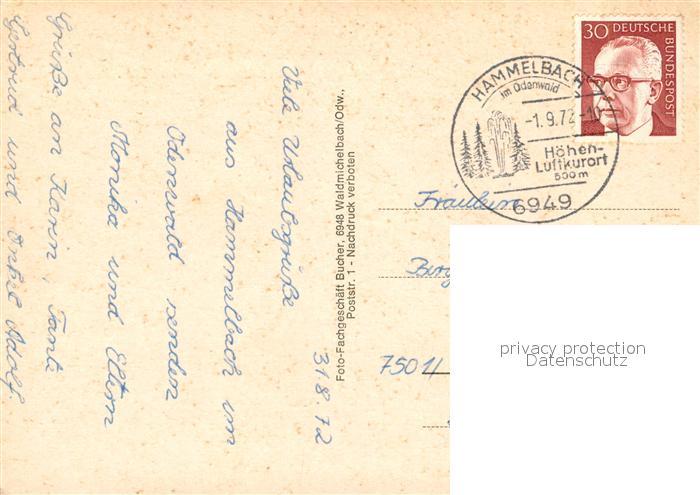 31 8. 72
Viele Urlaubsgrüße
aus Hammelbach im
Odenwald senden
Monika und Eltern
Grüße an Karin, Tante
Gertrud und Onkel Adolf.
Foto-Fachgeschäft Bucher, 6948 Waldmichelbach/Odw.,
Poststr. 1 - Nachdruck verboten
30 DEUTSCHE
BUNDESPOST
HAMMELBACH
im Odenwald
-1.9.72-10
Höhen-
Luftkurort
500 m
6949
Fräulein
7501/
privacy protection
Datenschutz